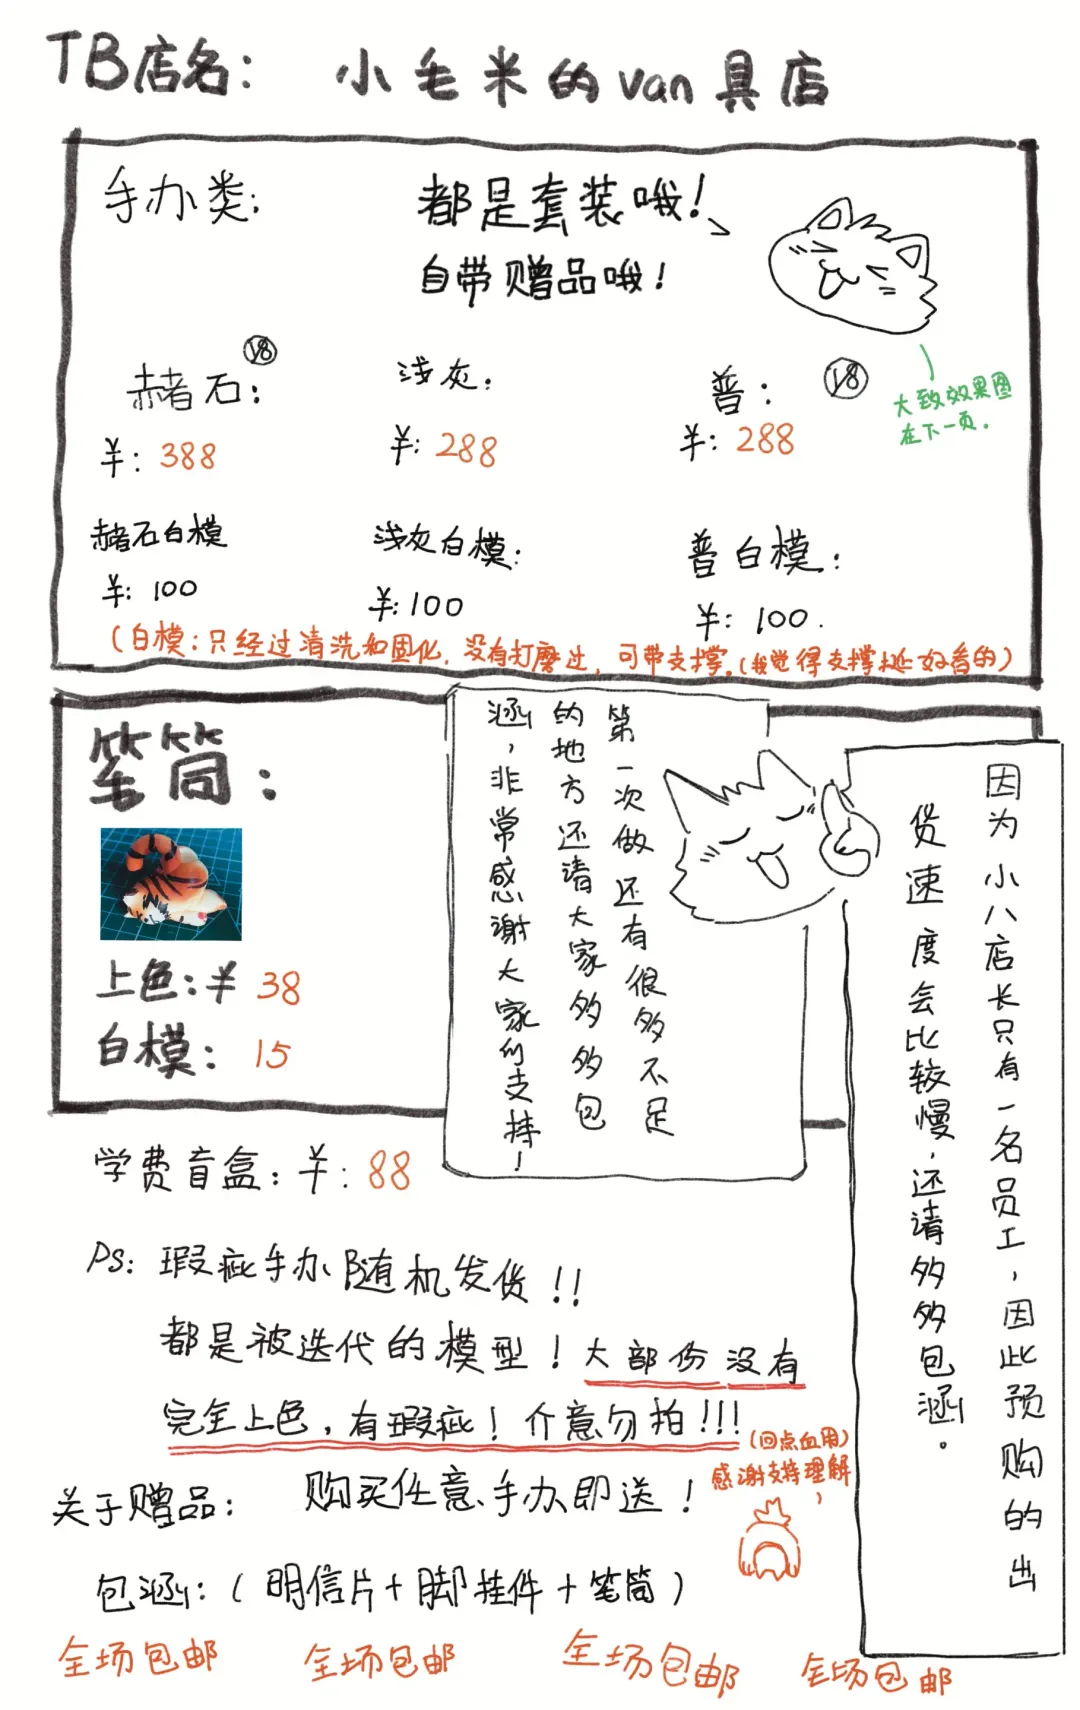 TB店名：小毛米的van具店
手办类：
都是套装哦！
自带赠品哦！
赭石：
V8
¥：388
浅灰：
¥：288
普：
V8
¥：288
大致效果图
在下一页.
赭石白模
¥：100
浅灰白模：
¥：100
普白模：
¥：100.
（白模：只经过清洗和固化，没有打磨过，可带支撑.（我觉得支撑挺好看的）
笔筒：
上色：¥ 38
白模：15
第一次做还有很多不足
的地方还请大家多多包
涵，非常感谢大家的支持！
因为小八店长只有一名员工，因此预购的出
货速度会比较慢，还请多多包涵。
学费盲盒：¥：88
Ps：瑕疵手办随机发货！！
都是被迭代的模型！大部份没有
完全上色，有瑕疵！介意勿拍!!!
（回点血用）
感谢支持理解，
关于赠品：购买任意手办即送！
包涵：（明信片+脚挂件+笔筒）
全场包邮 全场包邮 全场包邮 全场包邮